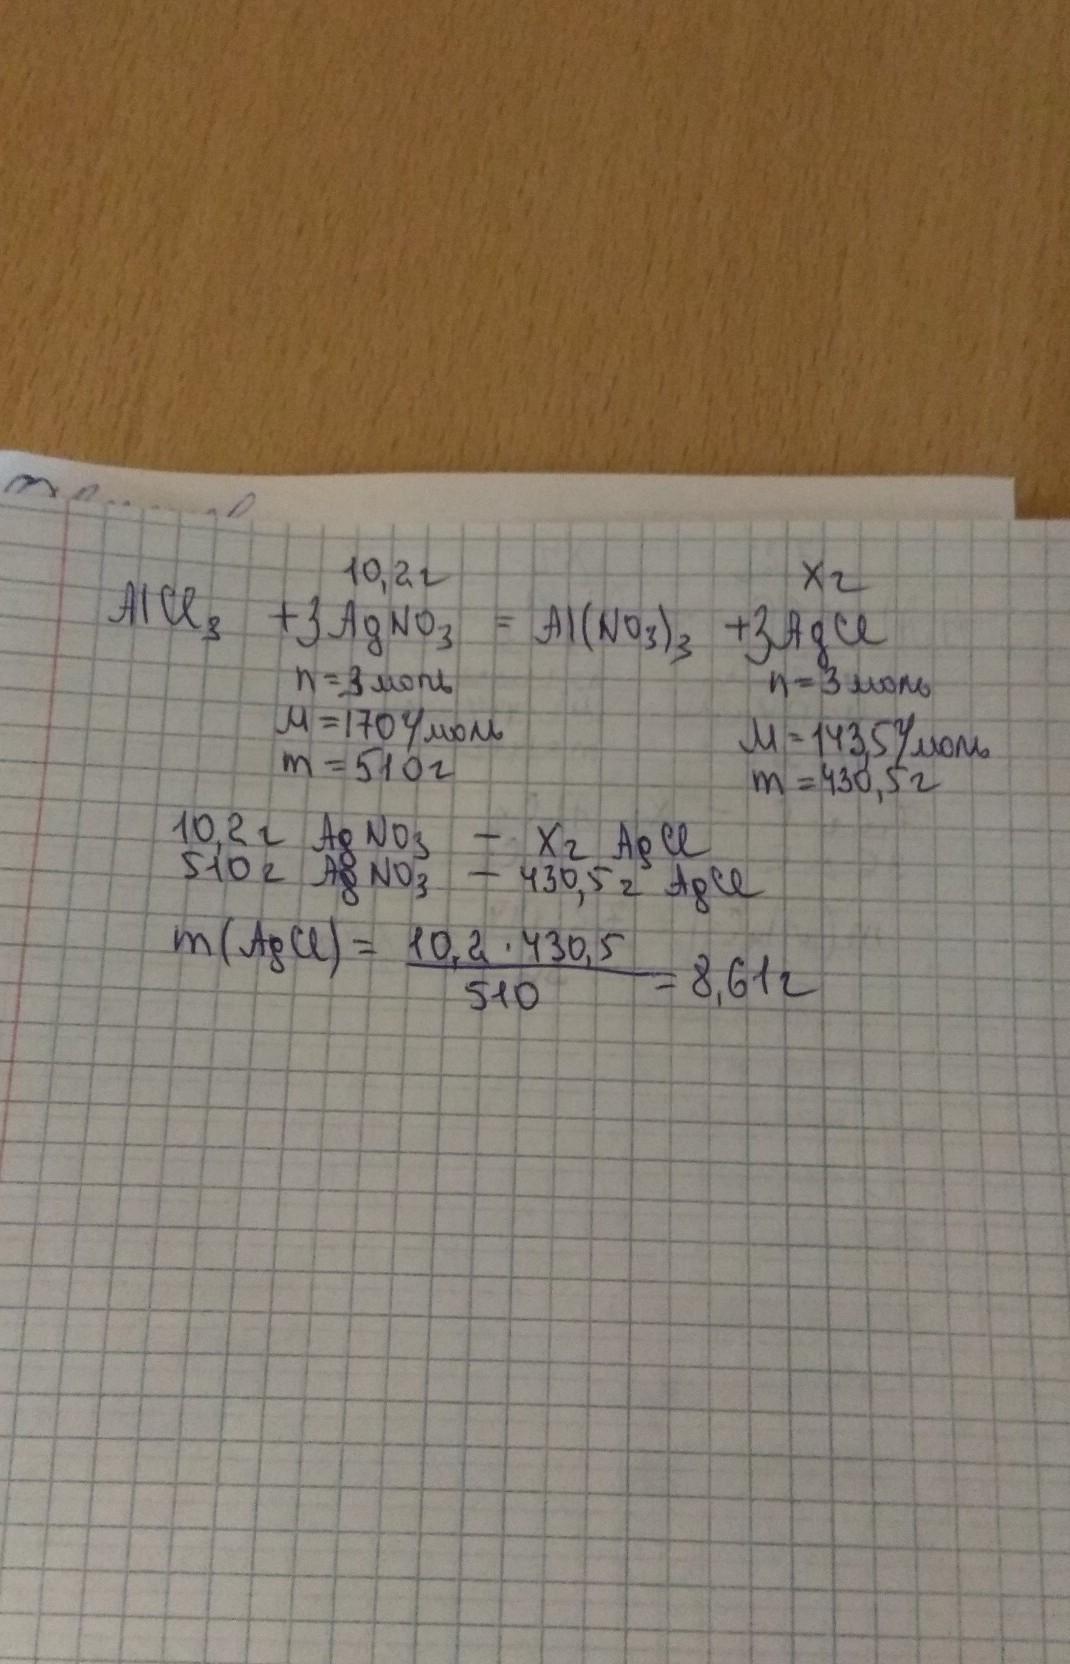 10,2г Xг
AlCl₃ +3AgNO₃ = Al(NO₃)₃ +3AgCl
n=3моль n=3моль
M=170г/моль M=143,5г/моль
m=510г m=430,5г
10,2г AgNO₃ – Xг AgCl
510г AgNO₃ – 430,5г AgCl
m(AgCl)= 10,2·430,5
510 =8,61г